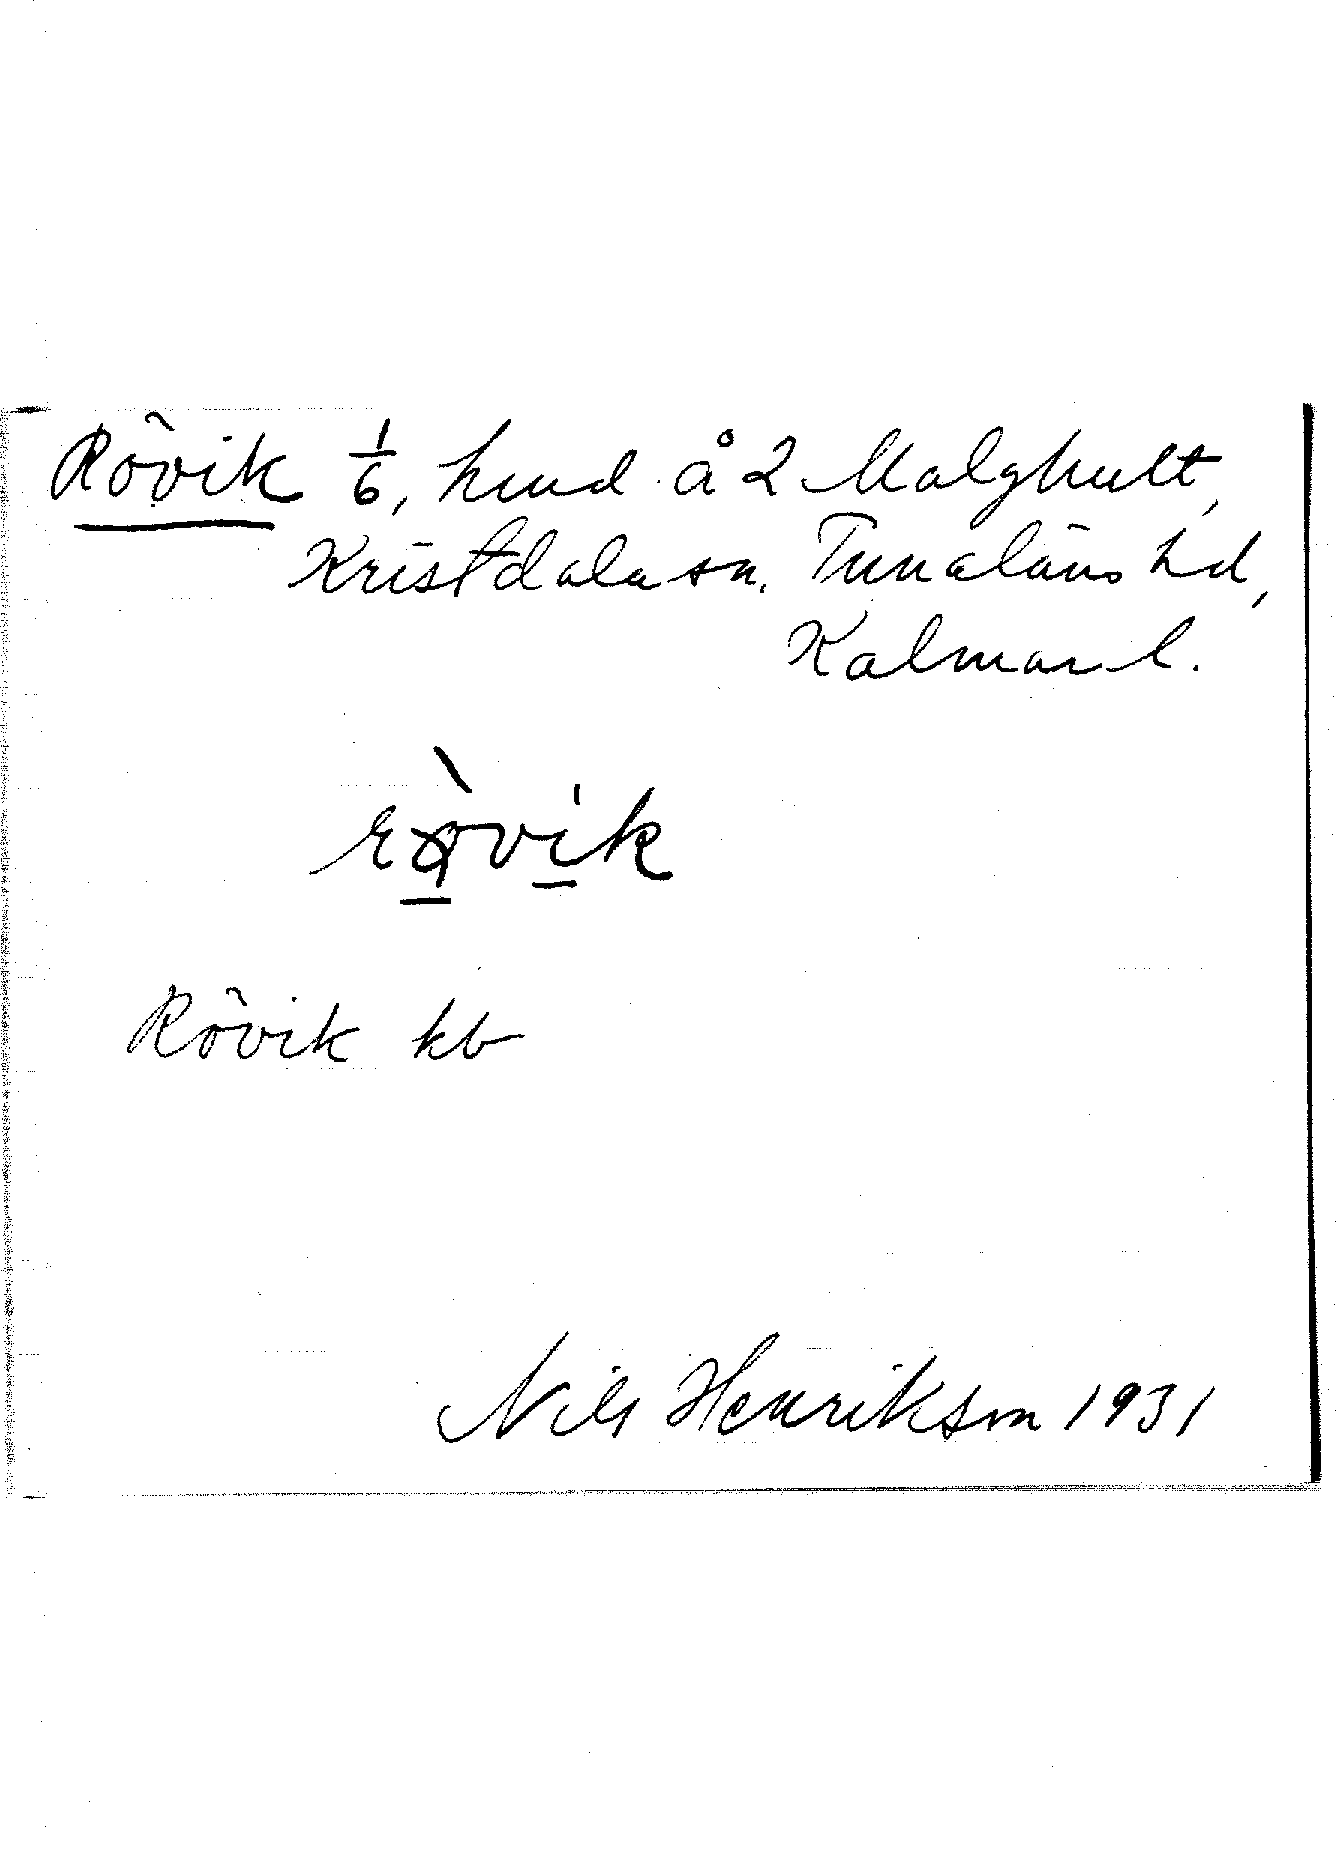 Rövik 1/6, hmd å 2 Malghult,
Kristdala sn. Tunaläns hd,
Kalmar l.
Rövik kb
Nils Henrikson 1931